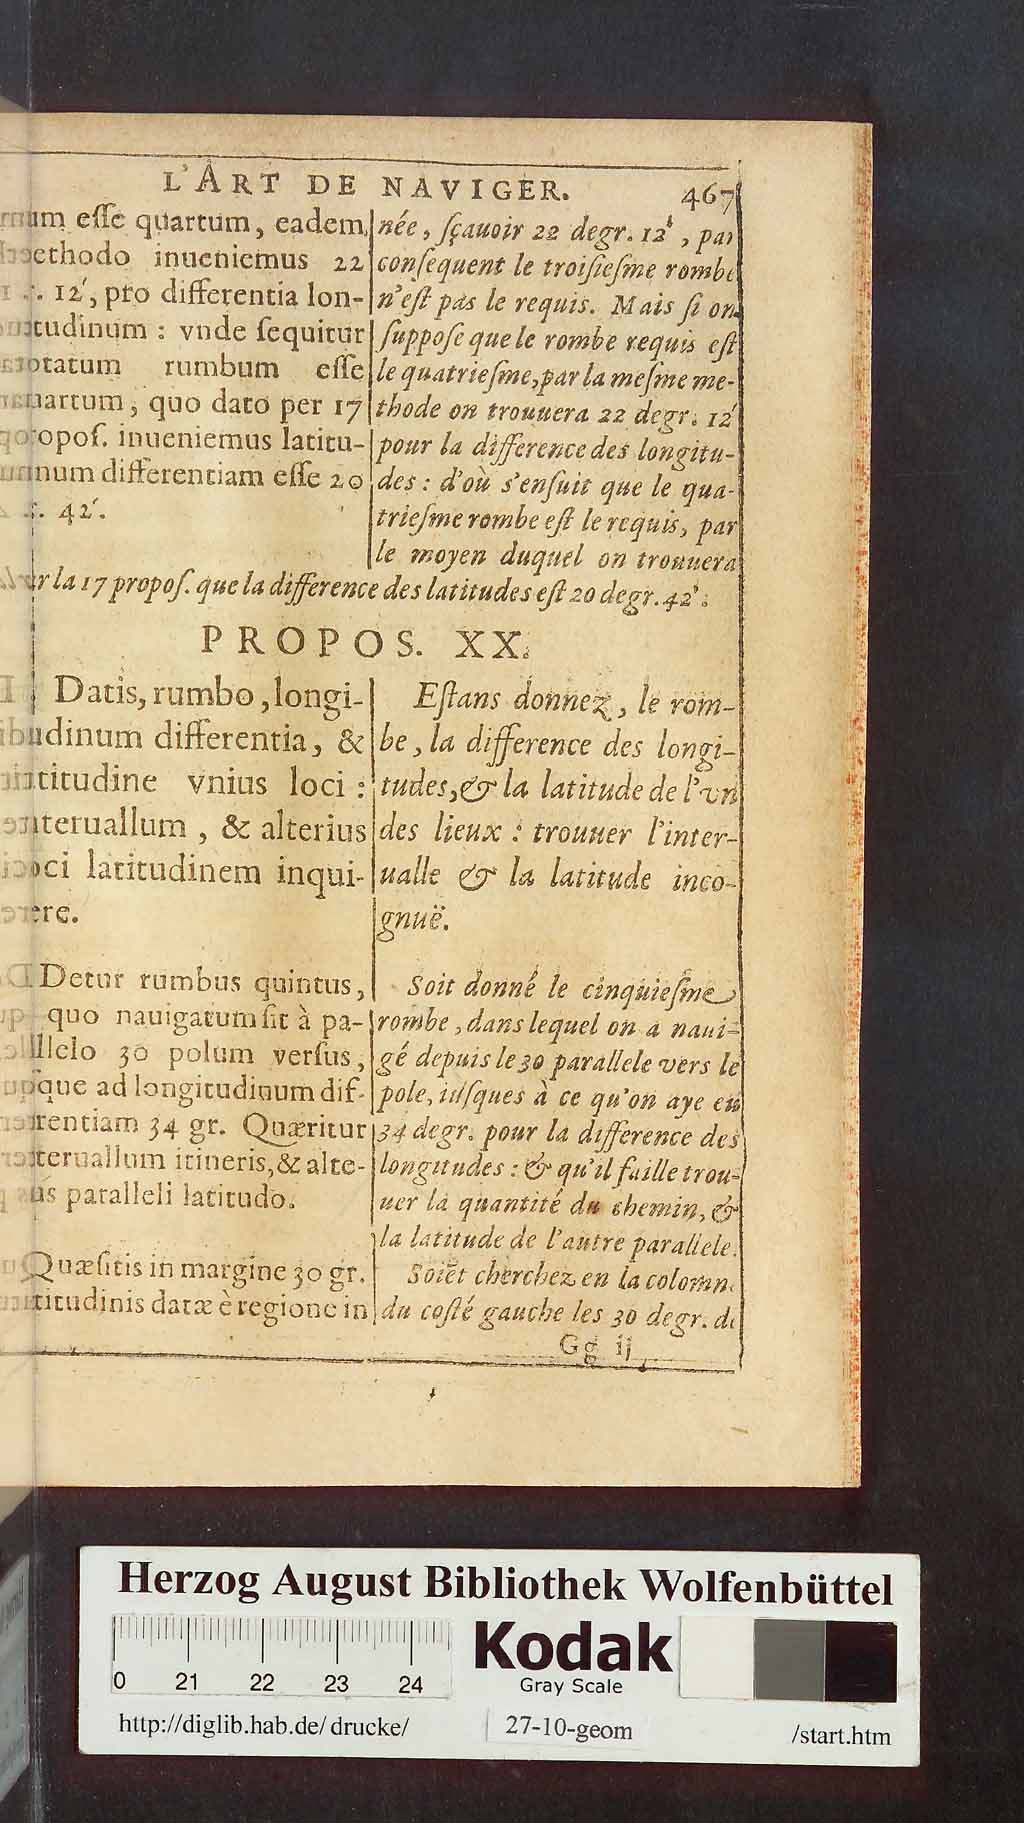 L'ART DE NAVIGER. 467
esse quartum, eadem
methodo inueniemus 22
12', pro differentia lon-
gitudinum : vnde sequitur
notatum rumbum esse
quartum, quo dato per 17
propos. inueniemus latitu-
dinum differentiam esse 20
42'.
née, sçauoir 22 degr. 12', par
consequent le troisiesme rombe
n'est pas le requis. Mais si on
suppose que le rombe requis est
le quatriesme, par la mesme me-
thode on trouuera 22 degr. 12'
pour la difference des longitu-
des : d'où s'ensuit que le qua-
triesme rombe est le requis, par
le moyen duquel on trouuera
la 17 propos. que la difference des latitudes est 20 degr. 42'.
PROPOS. XX.
Datis, rumbo, longi-
tudinum differentia, &
latitudine vnius loci :
interuallum, & alterius
loci latitudinem inqui-
rere.
Estans donnez, le rom-
be, la difference des longi-
tudes, & la latitude de l'vn
des lieux : trouuer l'inter-
ualle & la latitude inco-
gnuë.
Detur rumbus quintus,
quo nauigatum sit à pa-
rallelo 30 polum versus,
vsque ad longitudinum dif-
ferentiam 34 gr. Quæritur
interuallum itineris, & alte-
rius paralleli latitudo.
Quæsitis in margine 30 gr.
latitudinis datæ è regione in
Soit donné le cinquiesme
rombe, dans lequel on a naui-
gé depuis le 30 parallele vers le
pole, iusques à ce qu'on aye eu
34 degr. pour la difference des
longitudes : & qu'il faille trou-
uer la quantité du chemin, &
la latitude de l'autre parallele.
Soiẽt cherchez en la colomne
du costé gauche les 30 degr. de
Gg ij
Herzog August Bibliothek Wolfenbüttel
0 21 22 23 24
Kodak
Gray Scale
http://diglib.hab.de/drucke/ 27-10-geom /start.htm